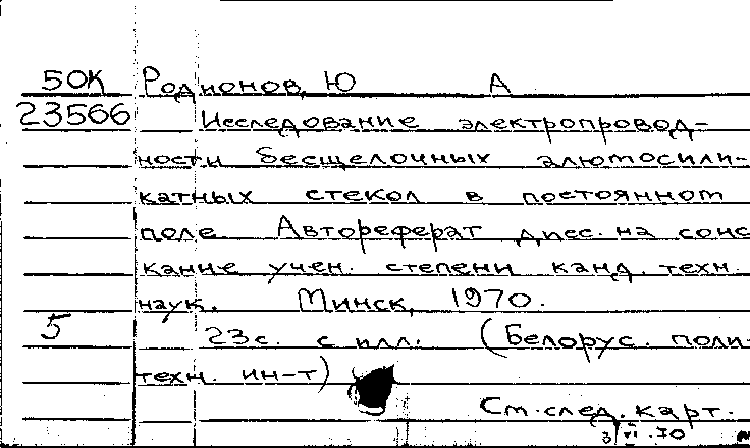 50К Родионов, Ю А
23566 Исследование электропровод-
ности бесщелочных алюмосили-
катных стекол в постоянном
поле. Автореферат дисс. на соис
кание учен. степени канд. техн.
наук. Минск, 1970.
5 23с. с илл. (Белорус. поли-
техн. ин-т)
См.след.карт.
3/VI.70